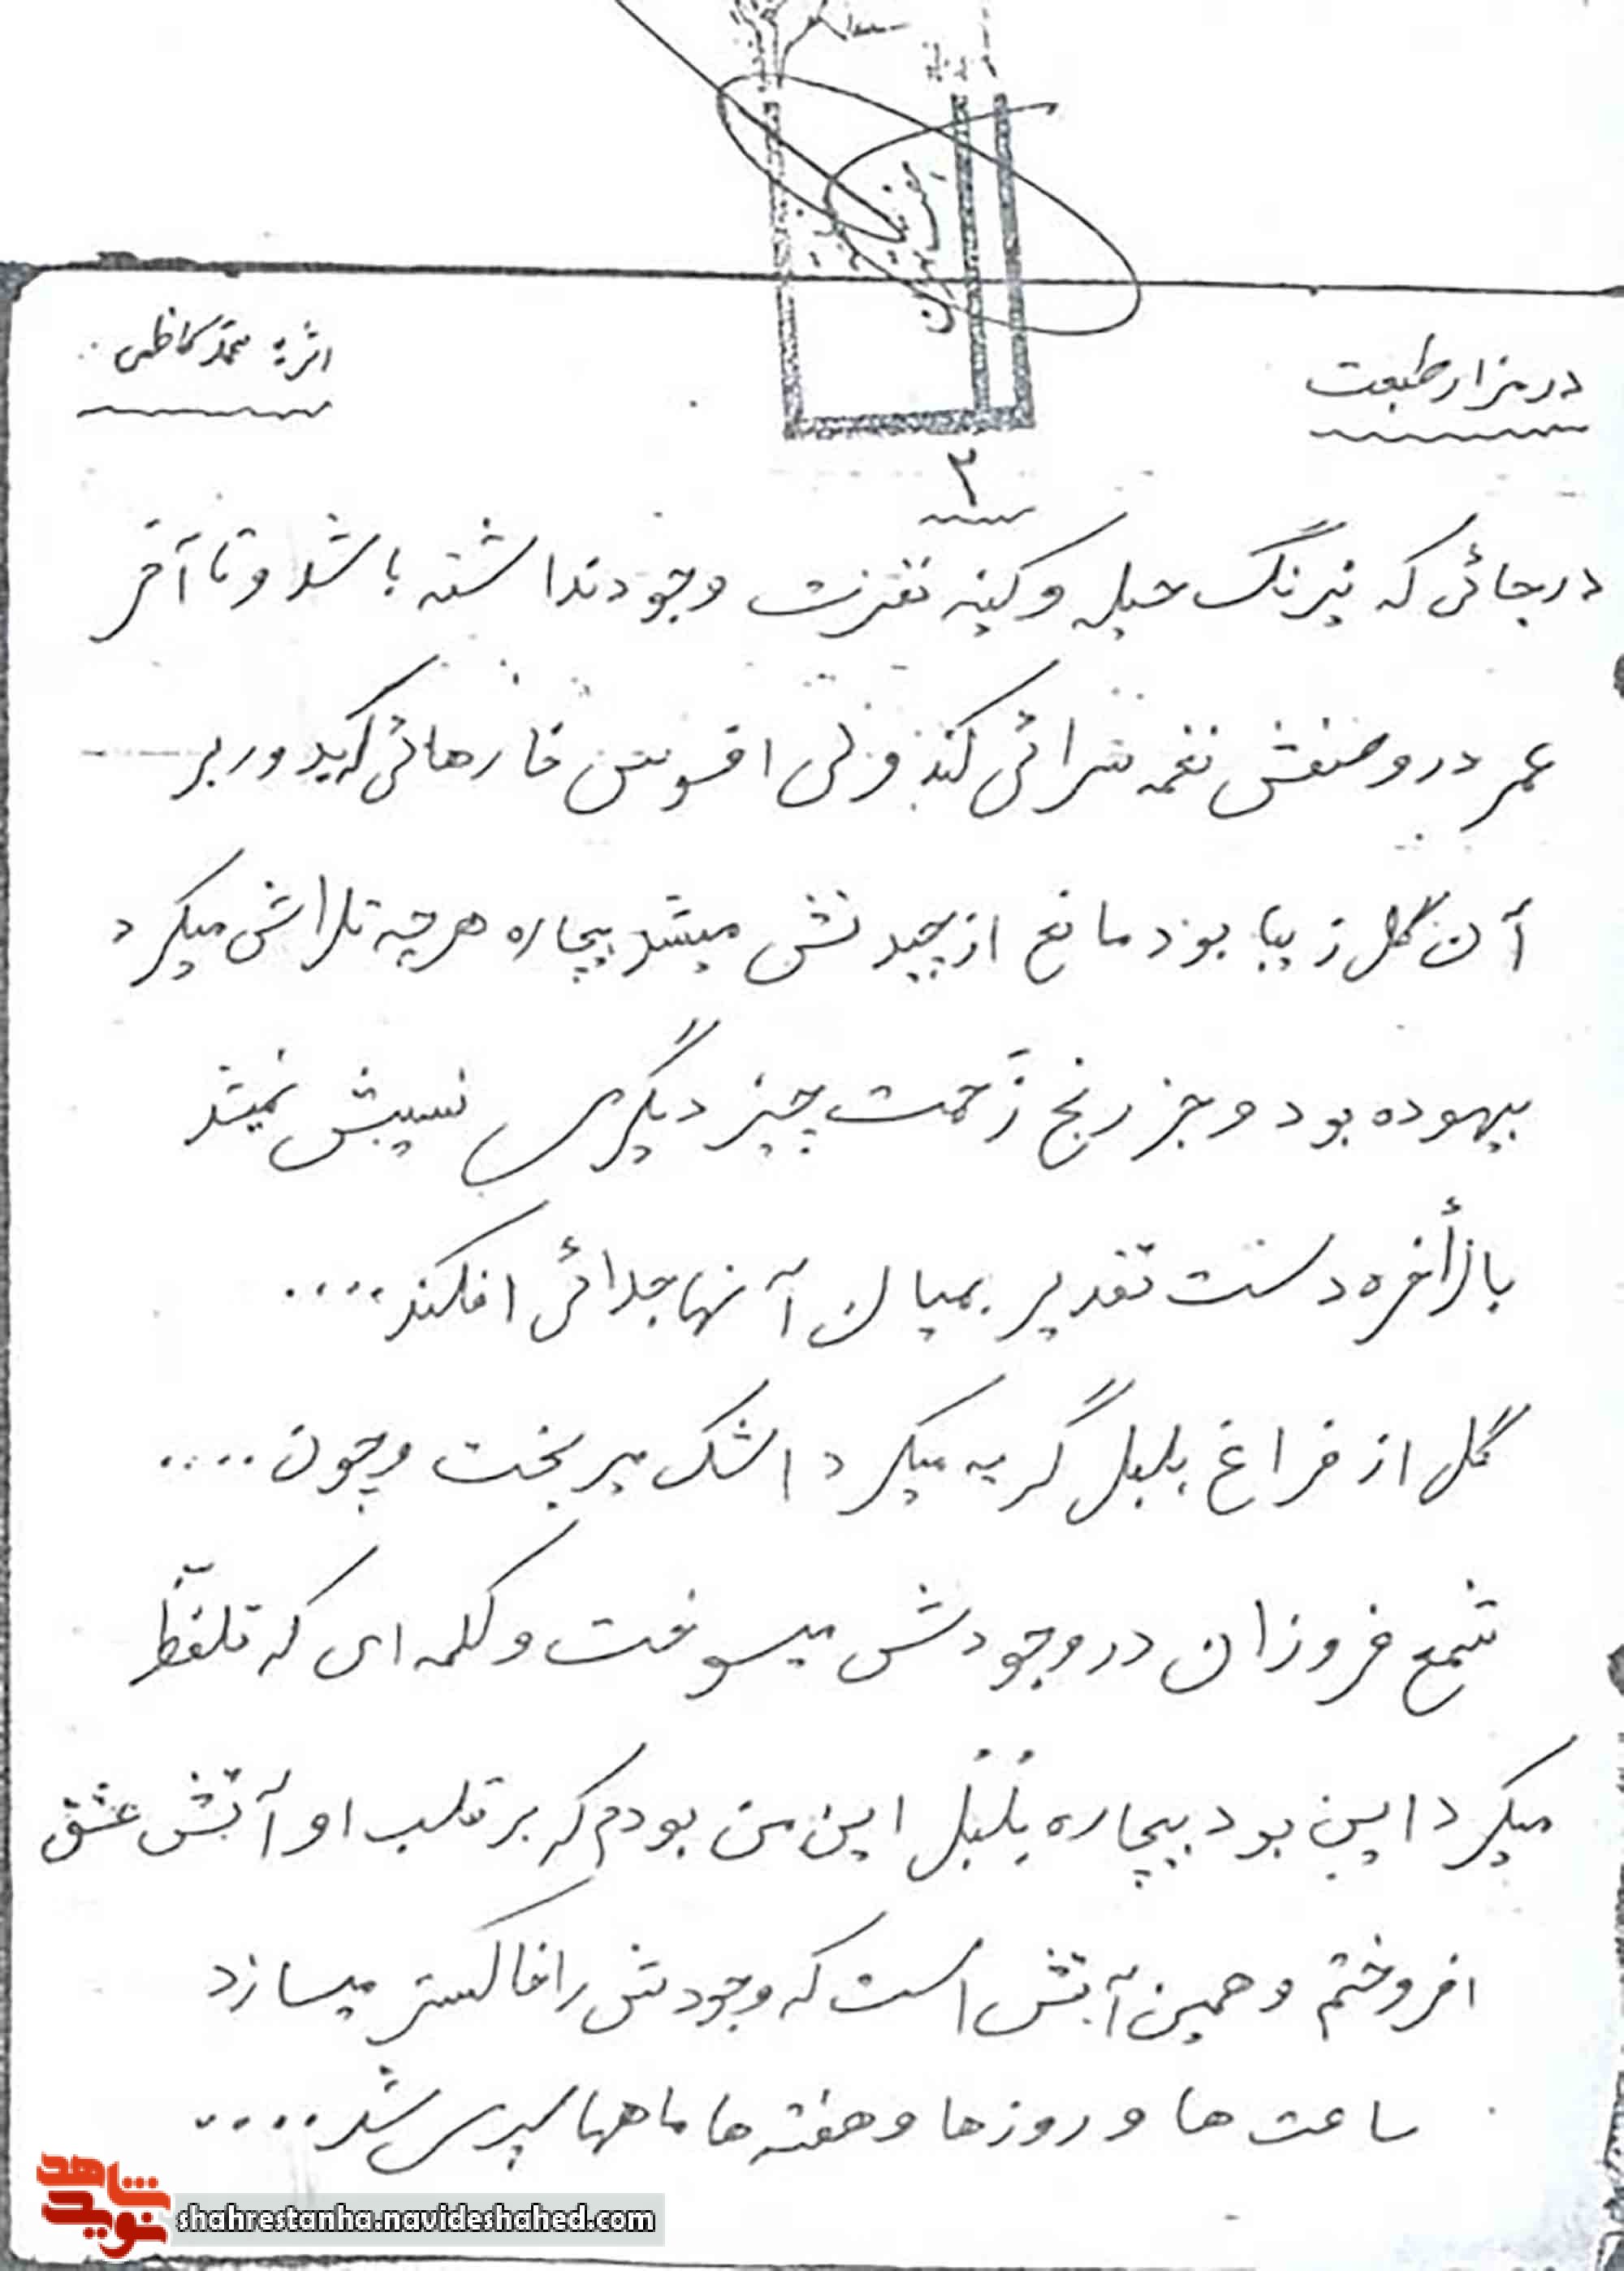 در مزار طبعت
اثر: محمد کاظمی
۳
در جائی که نیرنگ حیله و کینه نفرت وجود نداشته باشد و تا آخر
عمر در وصفش نغمه سرائی کند ولی افسوس خارهائی که بدور بر
آن گل زیبا بود مانع از چیدنش میشد بیچاره هر چه تلاش میکرد
بیهوده بود و جز رنج زحمت چیز دیگری نسیبش نمیشد
بالأخره دست تقدیر بمیان آنها جدائی افکند....
گل از فراغ بلبل گریه میکرد اشک میریخت و چون....
شمع فروزان در وجودش میسوخت و کلمه ای که تلفظ
میکرد این بود بیچاره بُلبُل این من بودم که بر قلب او آتش عشق
افروختم و همین آتش است که وجودش را خاکستر میسازد
ساعت ها و روزها و هفته ها ماهها سپری شد....
شاهد
نوید
shahrestanha.navideshahed.com